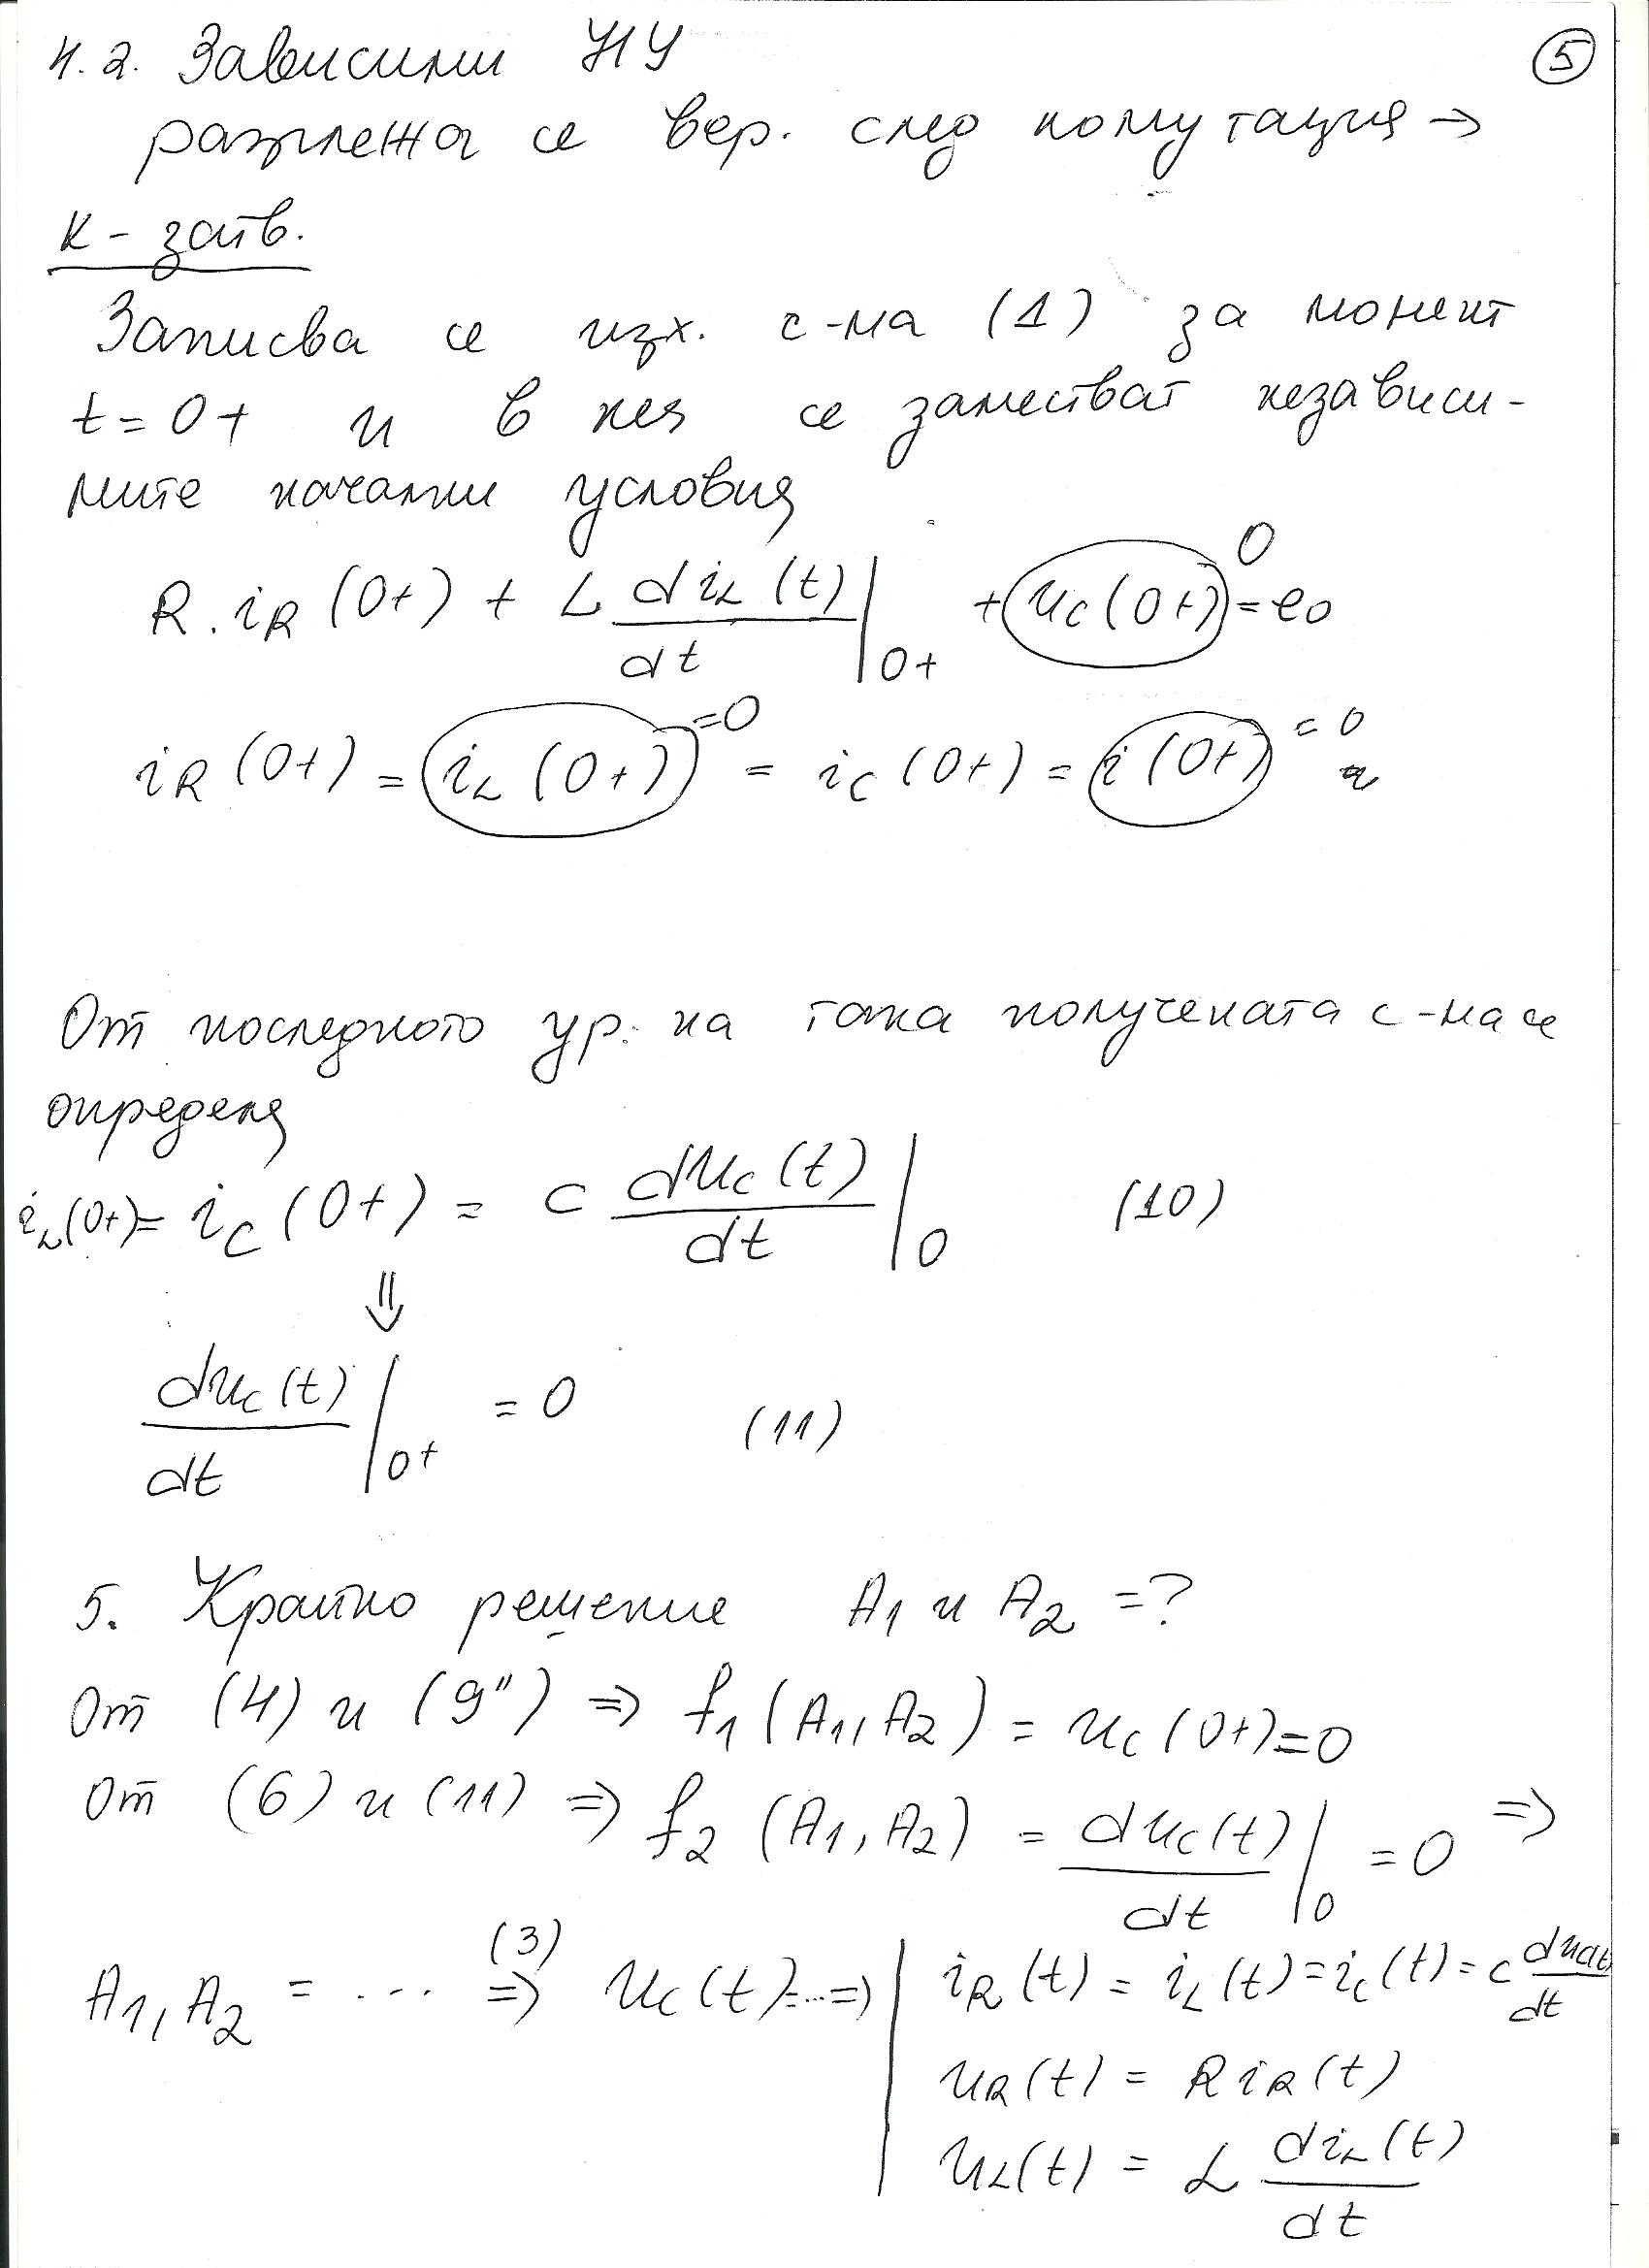 4.2. Зависими НУ
⑤
разглежда се вер. след комутация →
К - затв.
Записва се изх. с-ма (1) за момент
t = 0+ и в нея се заместват независи-
мите начални условия
R.iR(0+) + L diL(t)/dt |0+ + uC(0+) = e0
0
iR(0+) = iL(0+) =0 = iC(0+) = i(0+) = 0
От последното ур. на така получената с-ма се
определя
iL(0+)= iC(0+) = C duC(t)/dt |0 (10)
⇓
duC(t)/dt |0+ = 0 (11)
5. Крайно решение A1 и A2 =?
От (4) и (9") ⇒ f1(A1, A2) = uC(0+)=0
От (6) и (11) ⇒ f2(A1, A2) = duC(t)/dt |0 = 0 ⇒
A1, A2 = ... (3) ⇒ uC(t)=...⇒ | iR(t) = iL(t) = iC(t) = C duC(t)/dt
uR(t) = R iR(t)
uL(t) = L diL(t)/dt